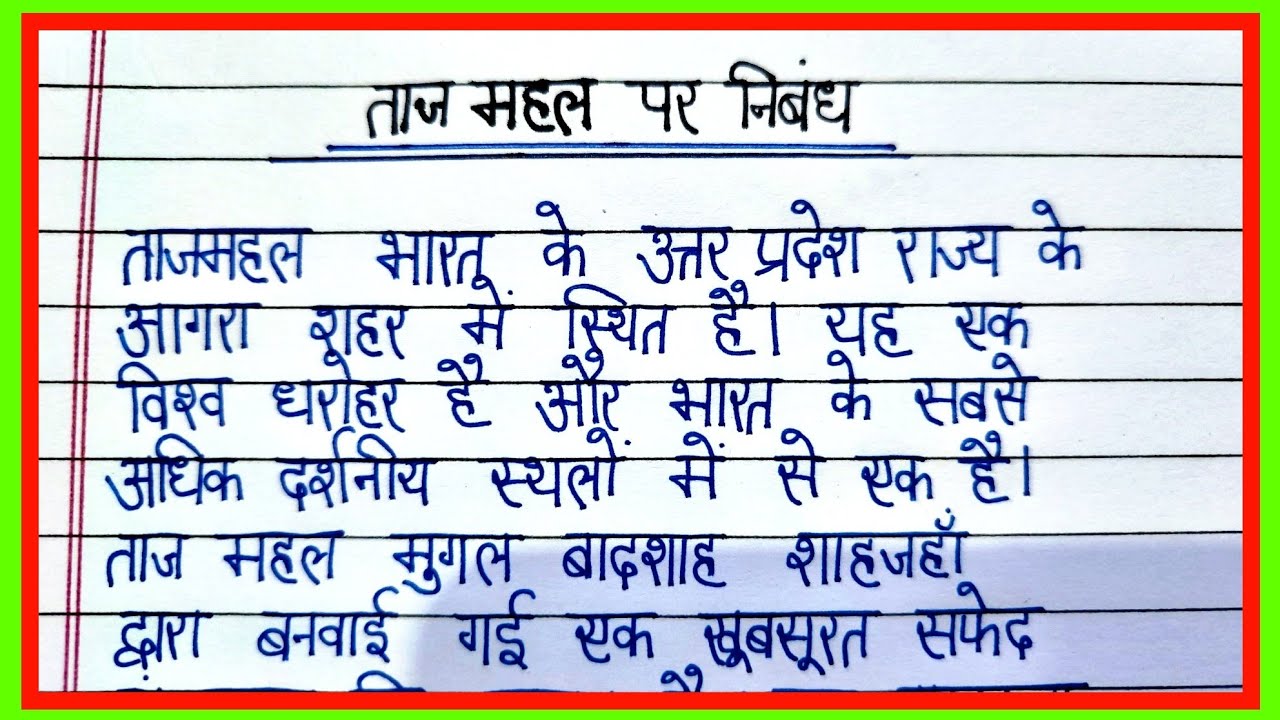 ताज महल पर निबंध
ताजमहल भारत के उत्तर प्रदेश राज्य के
आगरा शहर में स्थित है। यह एक
विश्व धरोहर है और भारत के सबसे
अधिक दर्शनीय स्थलों में से एक है।
ताज महल मुगल बादशाह शाहजहाँ
द्वारा बनवाई गई एक खूबसूरत सफेद